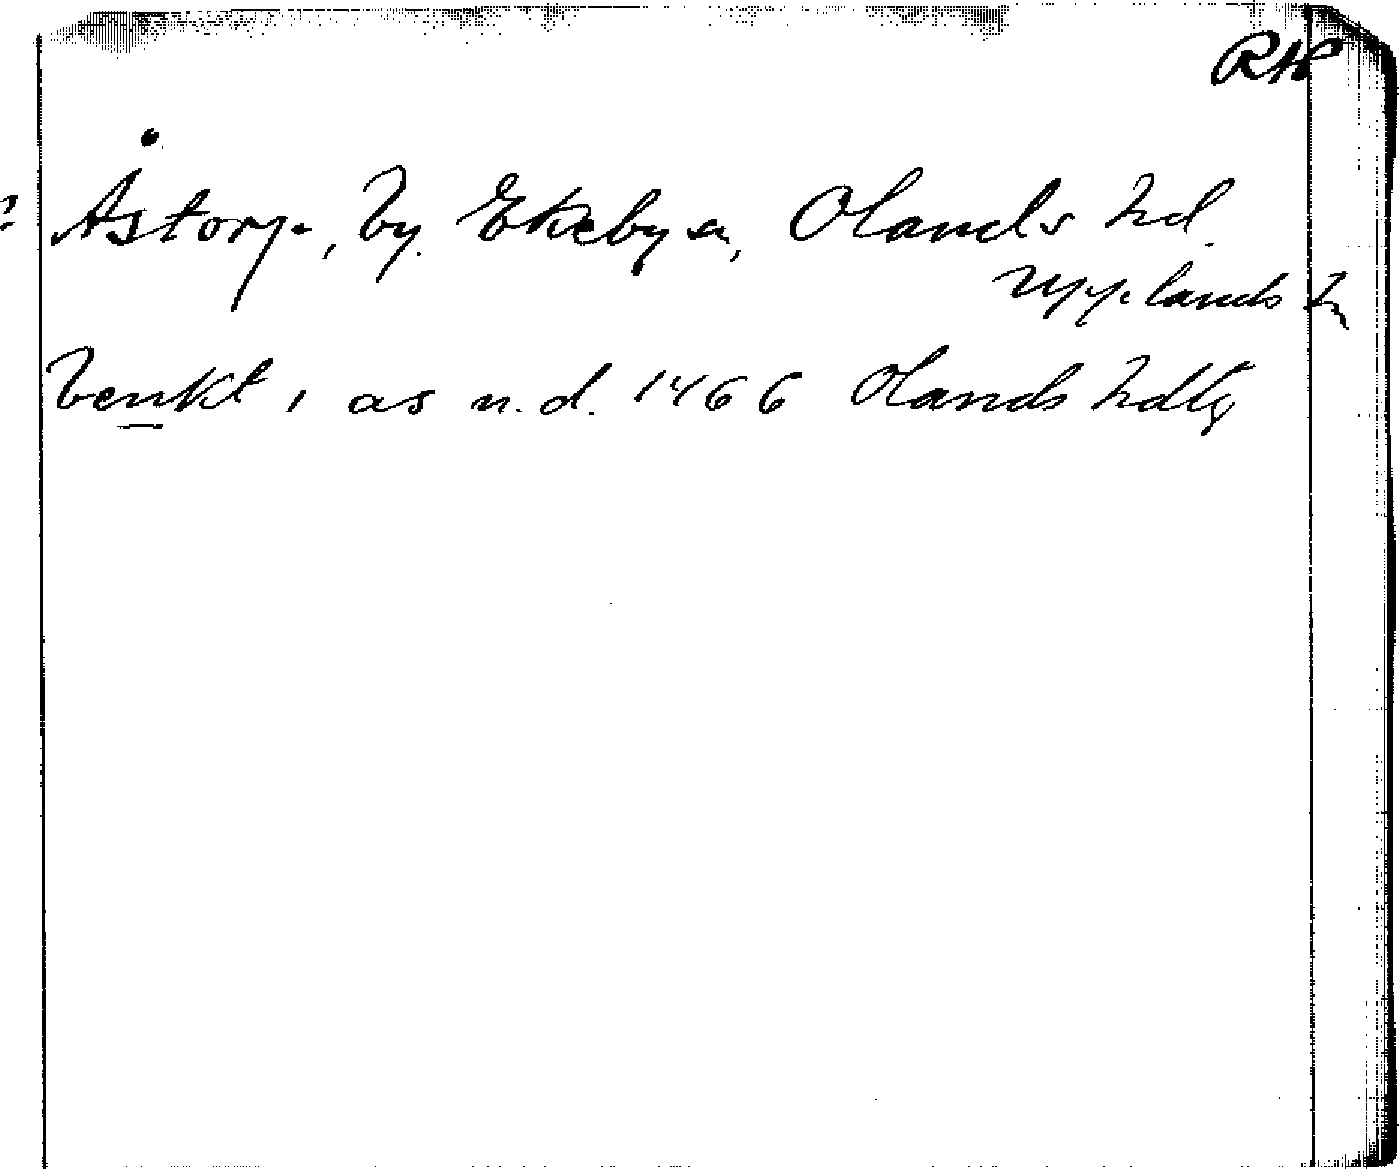 RAP
Åstorp, by. Ekeby sn, Olands hd.
Upplands ln
benkt i as n.d. 1466 Olands hdlg